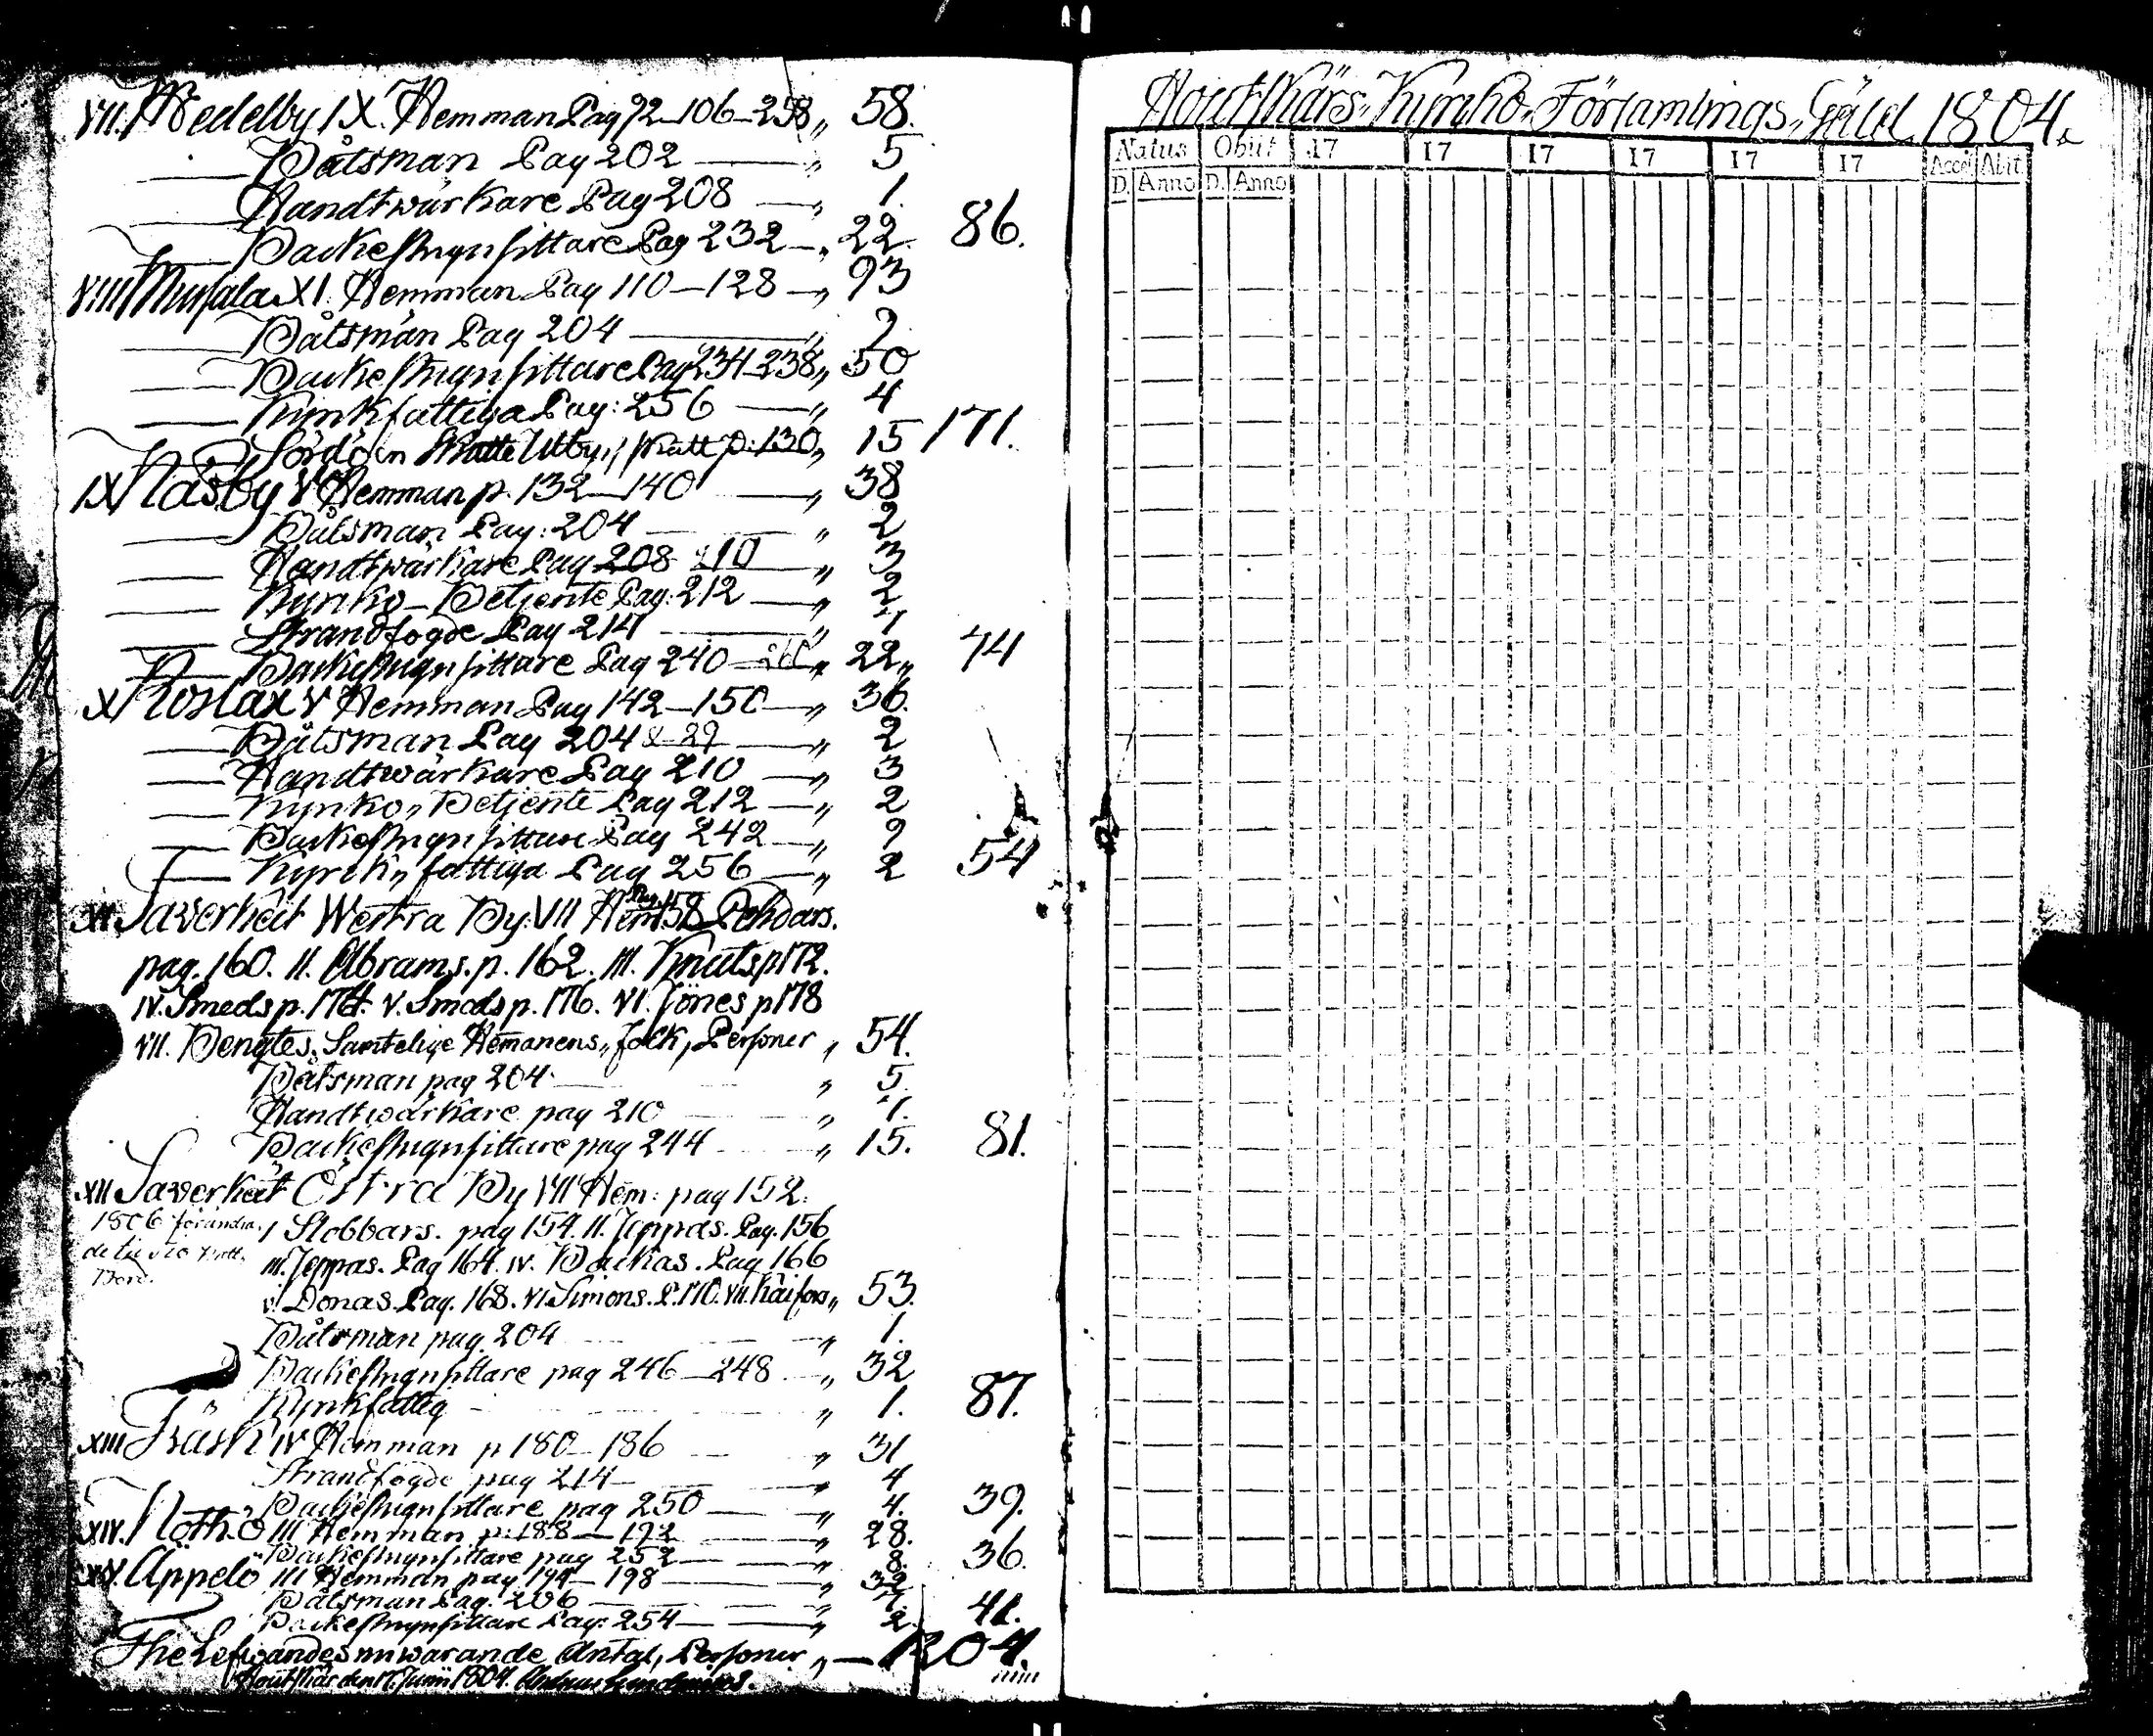 VII. Medelby IX. Hemman Pag 92–106–258 „ 58.
Båtsman Pag 202 — „ 5
Handtwärkare Pag 208 — „ 1.
Backestugusittare Pag 232 — „ 22. 86.
VIII Mussala XI. Hemman Pag 110–128 — „ 93
Båtsman Pag 204 — „ 9
Backestugusittare Pag 234–238 „ 50
Kyrkfattiga Pag: 256 — „ 4
Sördöen Skatte Utby, p: 130 „ 15 171.
IX Näsby V Hemman p. 132–140 — „ 38
Båtsman Pag: 204 — „ 2
Handtwärkare Pag 208 210 „ 3
Kyrko–Betjente Pag: 212 — „ 2
Strandfogde Pag 214 — „ 7
Backestugusittare Pag 240 „ 22 „ 74
X Roslax V Hemman Pag 142–150 — „ 36.
Båtsman Pag 204 & 29 — „ 2
Handtwärkare Pag 210 — „ 3
Kyrko „ Betjente Pag 212 — „ 2
Backestugusittare Pag 242 — „ 9
Kyrck „ fattiga Pag 256 — „ 2 54
XI. Saverkeit Westra By. VII Hem: Pag. 158
pag. 160. II. Abrams. p. 162. III. Knuts p 172.
IV. Smeds p. 174. V. Smeds p. 176. VI. Jönes p 178
VII. Bengtes. Samtelige Hemanens „ folk, Personer „ 54.
Båtsman pag 204 — „ 5.
Handtwärkare pag 210 „ 7.
Backestugusittare pag 244 „ 15. 81.
XII Saverkeit Östra By VII Hem: pag 152.
1806 förändra.
I Slobbars. pag 154. II. Jeppas. Pag. 156
III. Jeppas. Pag 164. IV. Backas. Pag 166
V. Donas. Pag. 168. VI. Simons. P. 170. VII. Kaifors „ 53.
Båtsman pag. 204 „ 1.
Backestugusittare pag 246–248 — „ 32
Kyrkfattig „ 1. 87.
XIII Träsk IV Hemman p 180–186 — „ 31
Strandfogde pag 214 — „ 4
Backestugusittare pag 250 — „ 4. 39.
XIV. Nöth-ö III Hemman p: 188–192 — „ 28.
Backestugusittare pag 252 — „ 8. 36.
XV. Äppelö III Hemman pag 194–198 — „ 32
Båtsman Pag. 206 — „ 7.
Backestugusittare Pag: 254 — „ 2 41.
The Lefwandes nuwarande Antal, Personer „ — 1204.
Houtskär den Junii 1804.
Houtskärs „ Kyrcko „ Församlings „ Gäld 1804.
Natus Obiit 17 17 17 17 17 17 Acced Abit
D. Anno D. Anno